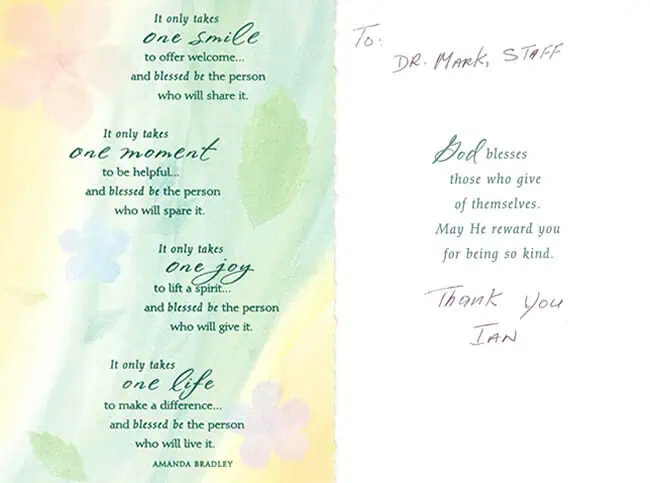 It only takes
one smile
to offer welcome...
and blessed be the person
who will share it.
It only takes
one moment
to be helpful...
and blessed be the person
who will spare it.
It only takes
one joy
to lift a spirit...
and blessed be the person
who will give it.
It only takes
one life
to make a difference...
and blessed be the person
who will live it.
AMANDA BRADLEY
To:
DR. MARK, STAFF
God blesses
those who give
of themselves.
May He reward you
for being so kind.
Thank you
IAN